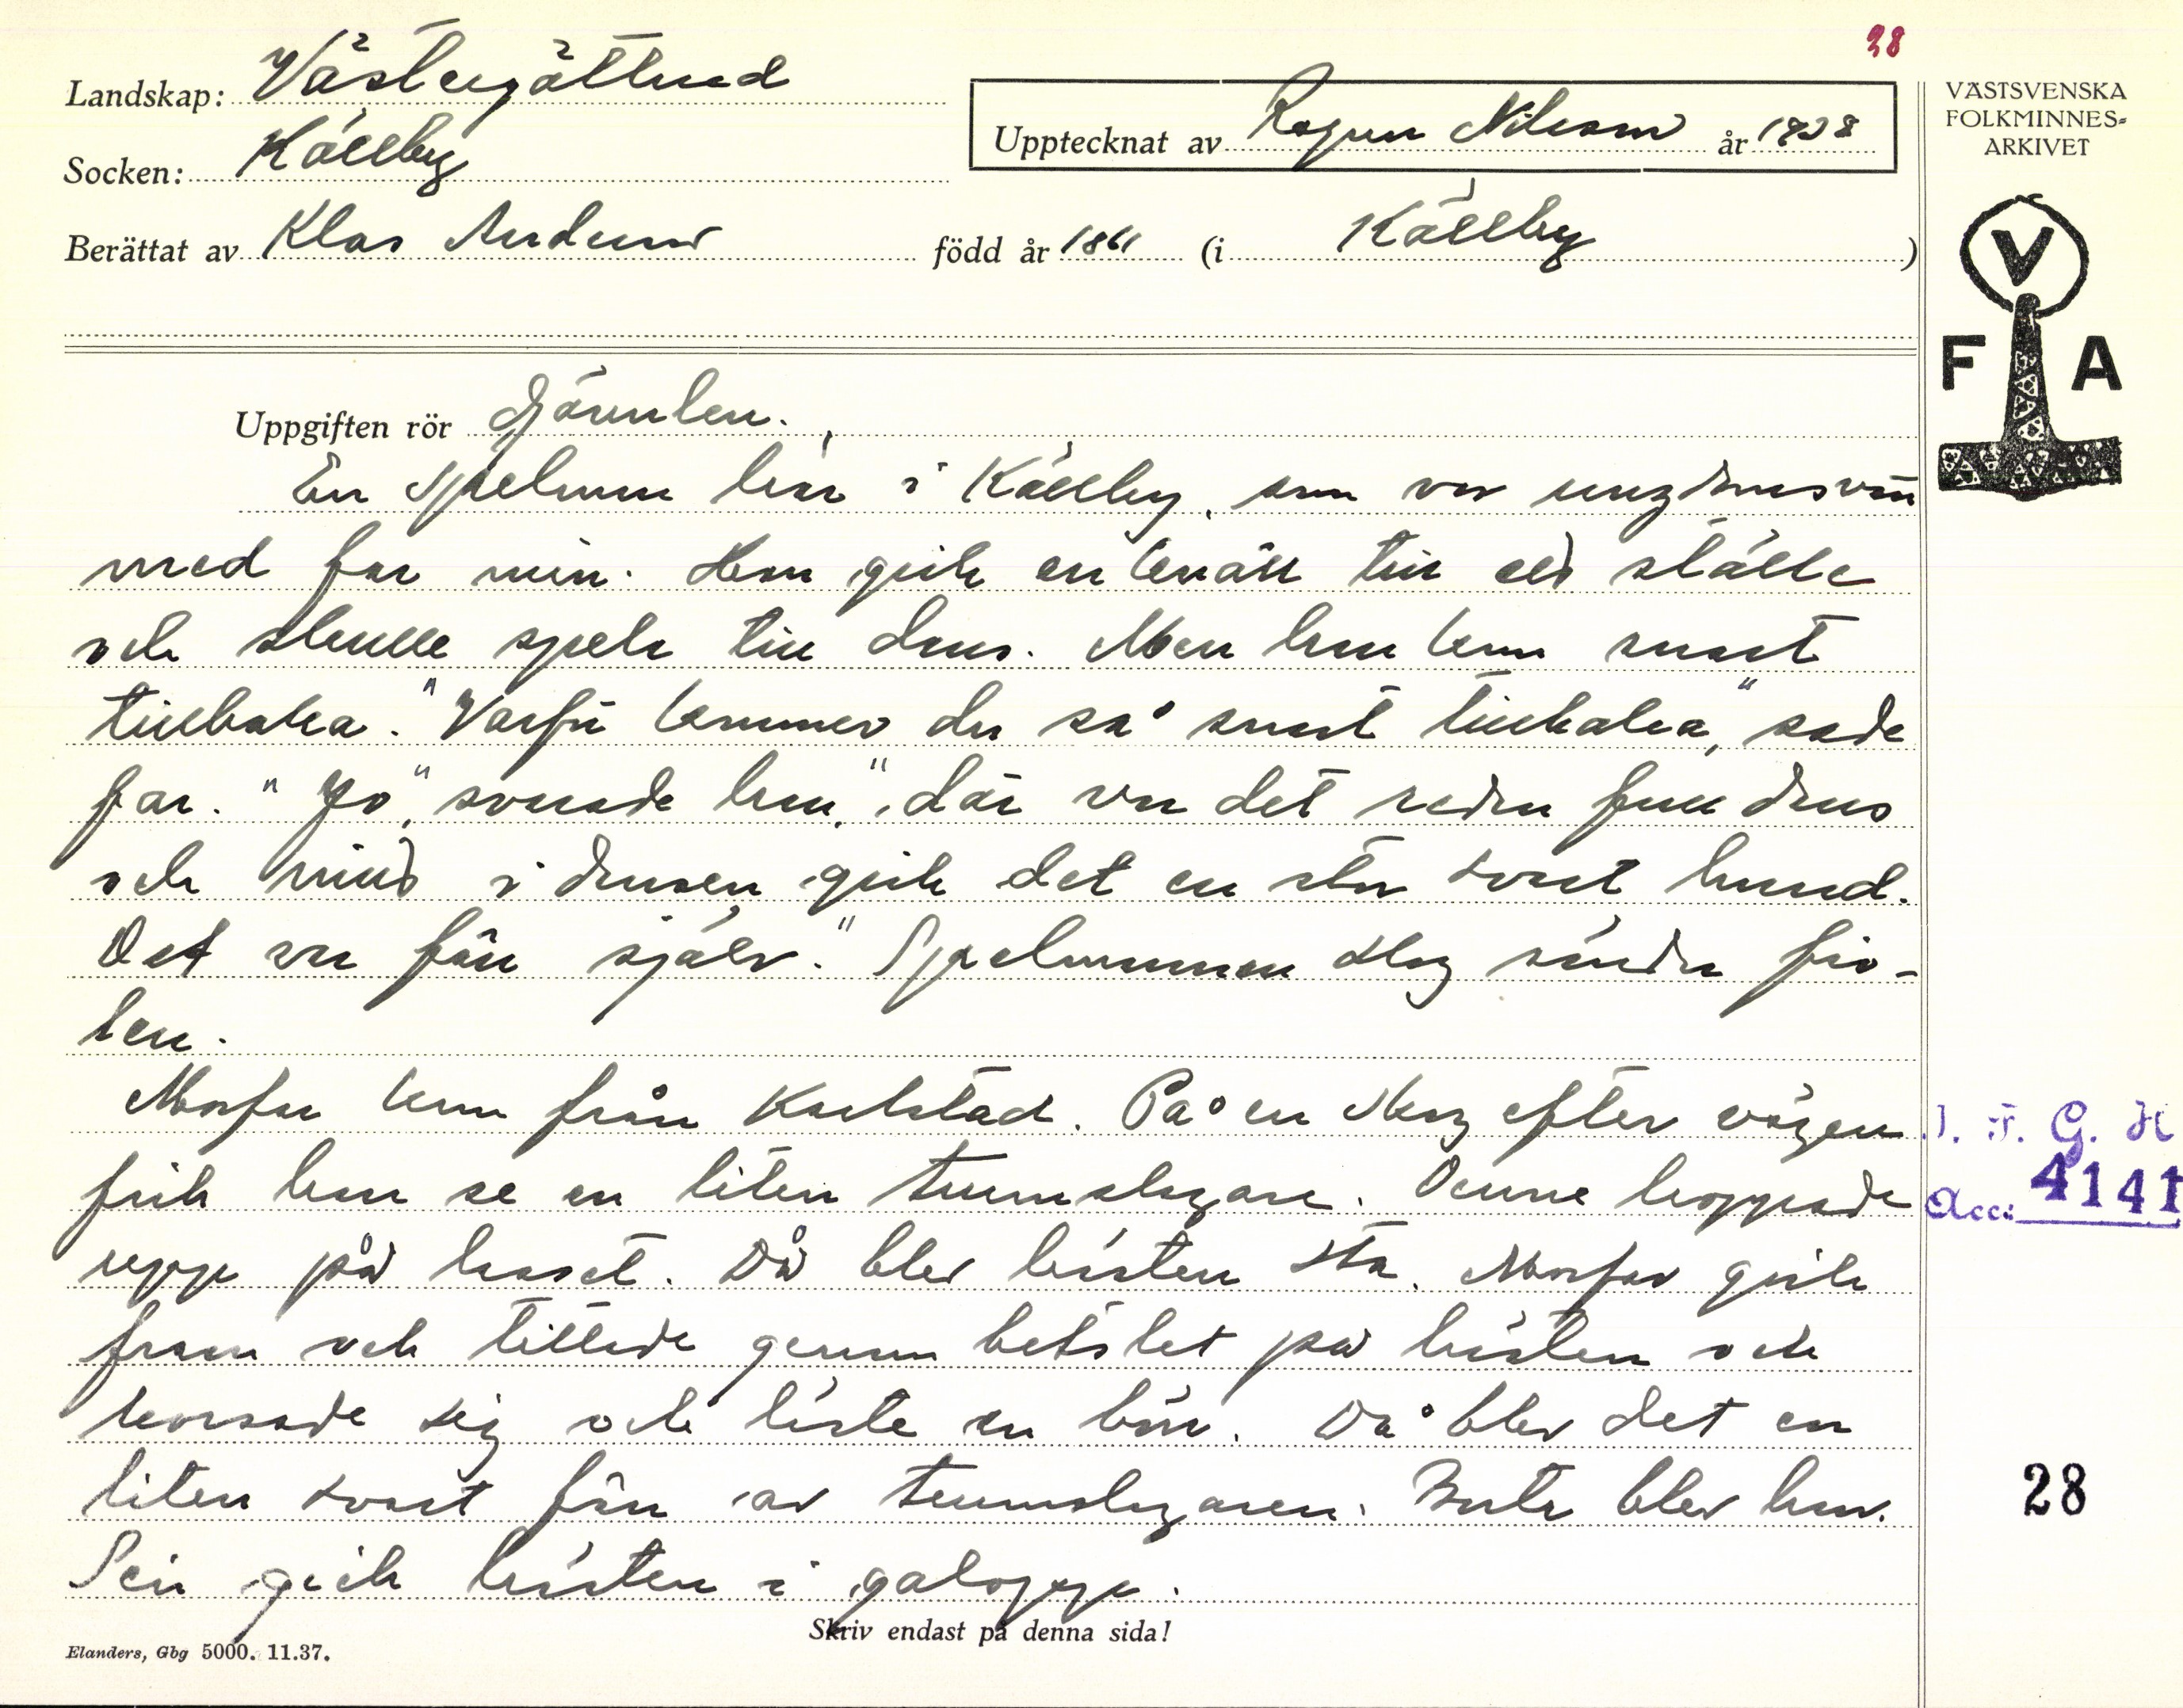 28
Landskap: Västergötland
Upptecknat av Ragnar Nilsson år 1938
VÄSTSVENSKA
FOLKMINNES-
ARKIVET
Socken: Källby
Berättat av Klas Andersson född år 1861 (i Källby)
V
F A
Uppgiften rör djävulen.
En spelman här i Källby, som var ungdomsvän
med far min. Han gick en kväll till ett ställe
och skulle spela till dans. Men han kom snart
tillbaka. "Varför kommer du så snart tillbaka", sade
far. "Jo", svarade han, "där var det redan full dans
och mitt i dansen gick det en stor svart hund.
Det var fan själv." Spelmannen slog sönder fio-
len.
Morfar kom från Karlstad. På en skog efter vägen
fick han se en liten trumslagare. Denne hoppade
upp på lasset. Då blev hästen sta. Morfar gick
fram och tittade genom betslet på hästen och
korsade sig och läste en bön. Då blev det en
liten svart fan av trumslagaren. Borta blev han.
Sen gick hästen i galopp.
I. F. G. H
Acc: 4141
28
Skriv endast på denna sida!
Elanders, Gbg 5000. 11.37.